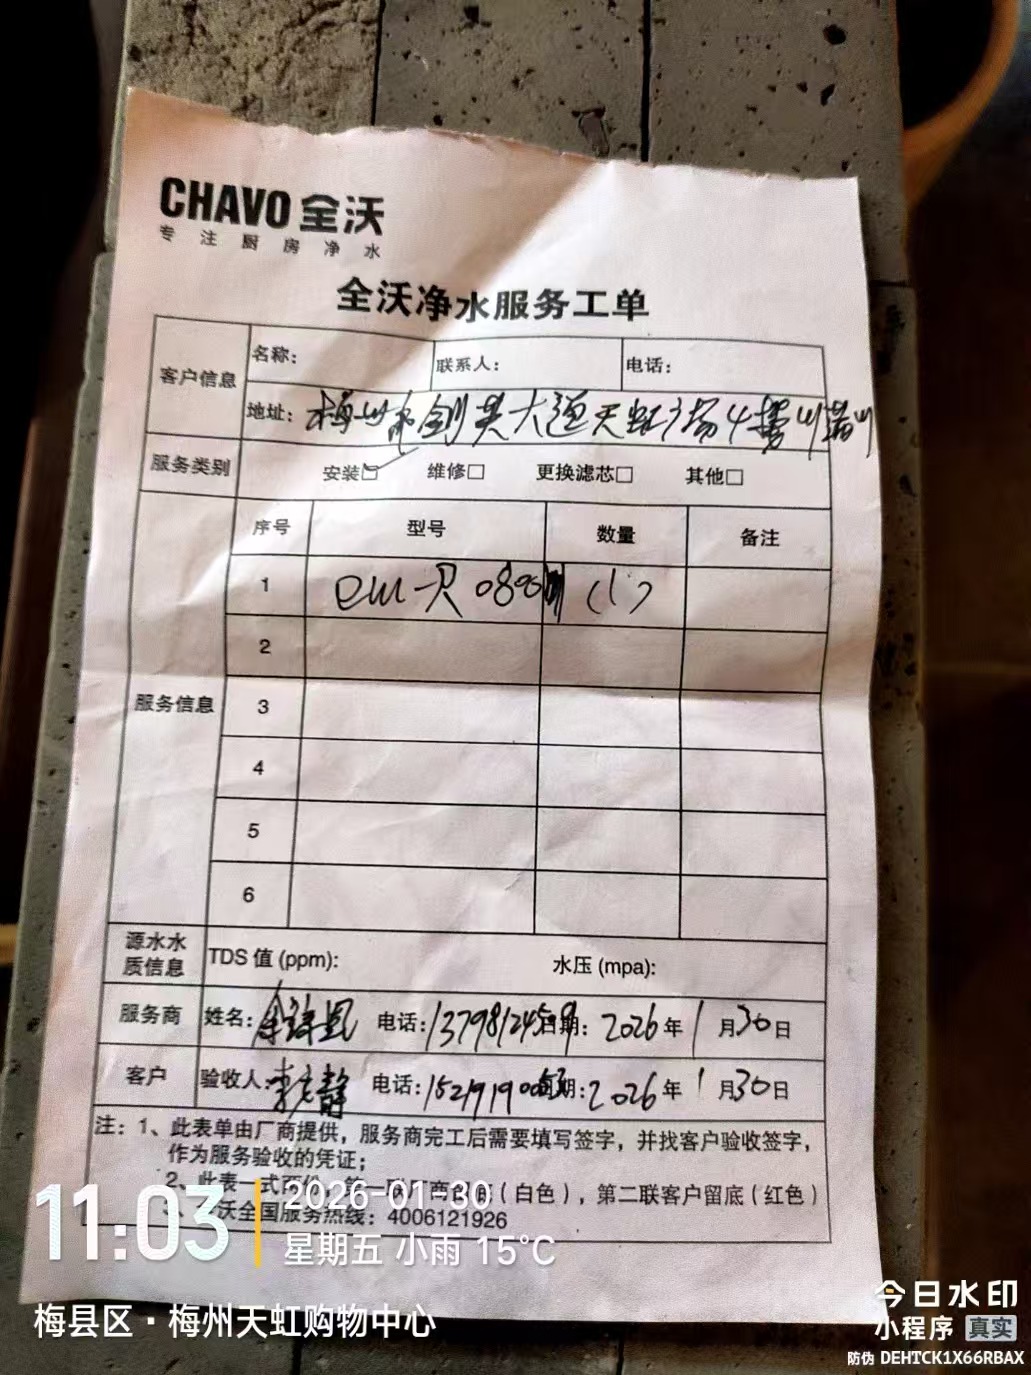 CHAVO 全沃
专注厨房净水
全沃净水服务工单
客户信息 名称： 联系人： 电话：
地址：梅州市剑英大道天虹广场4楼
服务类别 安装☑ 维修□ 更换滤芯□ 其他□
服务信息 序号 型号 数量 备注
1 (1)
2
3
4
5
6
源水水质信息 TDS 值 (ppm): 水压 (mpa):
服务商 姓名： 电话： 日期：2026年1月30日
客户 验收人： 电话： 日期：2026年1月30日
注：1、此表单由厂商提供，服务商完工后需要填写签字，并找客户验收签字，
作为服务验收的凭证；
2、此表一式两份，第一联厂商留底（白色），第二联客户留底（红色）
沃全国服务热线：4006121926
11:03
2026-01-30
星期五 小雨 15°C
梅县区·梅州天虹购物中心
今日水印
小程序 真实
防伪 DEHTCK1X66RBAX